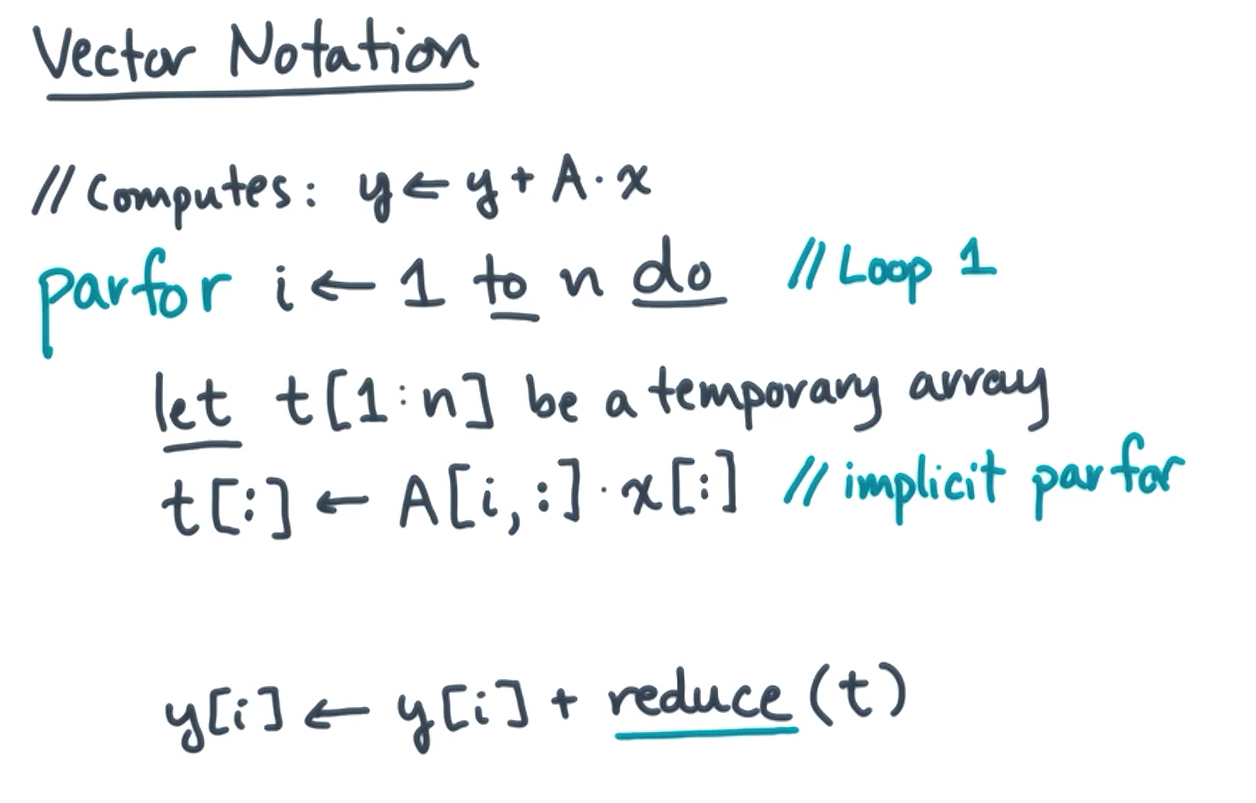 Vector Notation
// Computes: y ← y + A · x
parfor i ← 1 to n do // Loop 1
let t[1:n] be a temporary array
t[:] ← A[i,:] · x[:] // implicit parfor
y[i] ← y[i] + reduce(t)